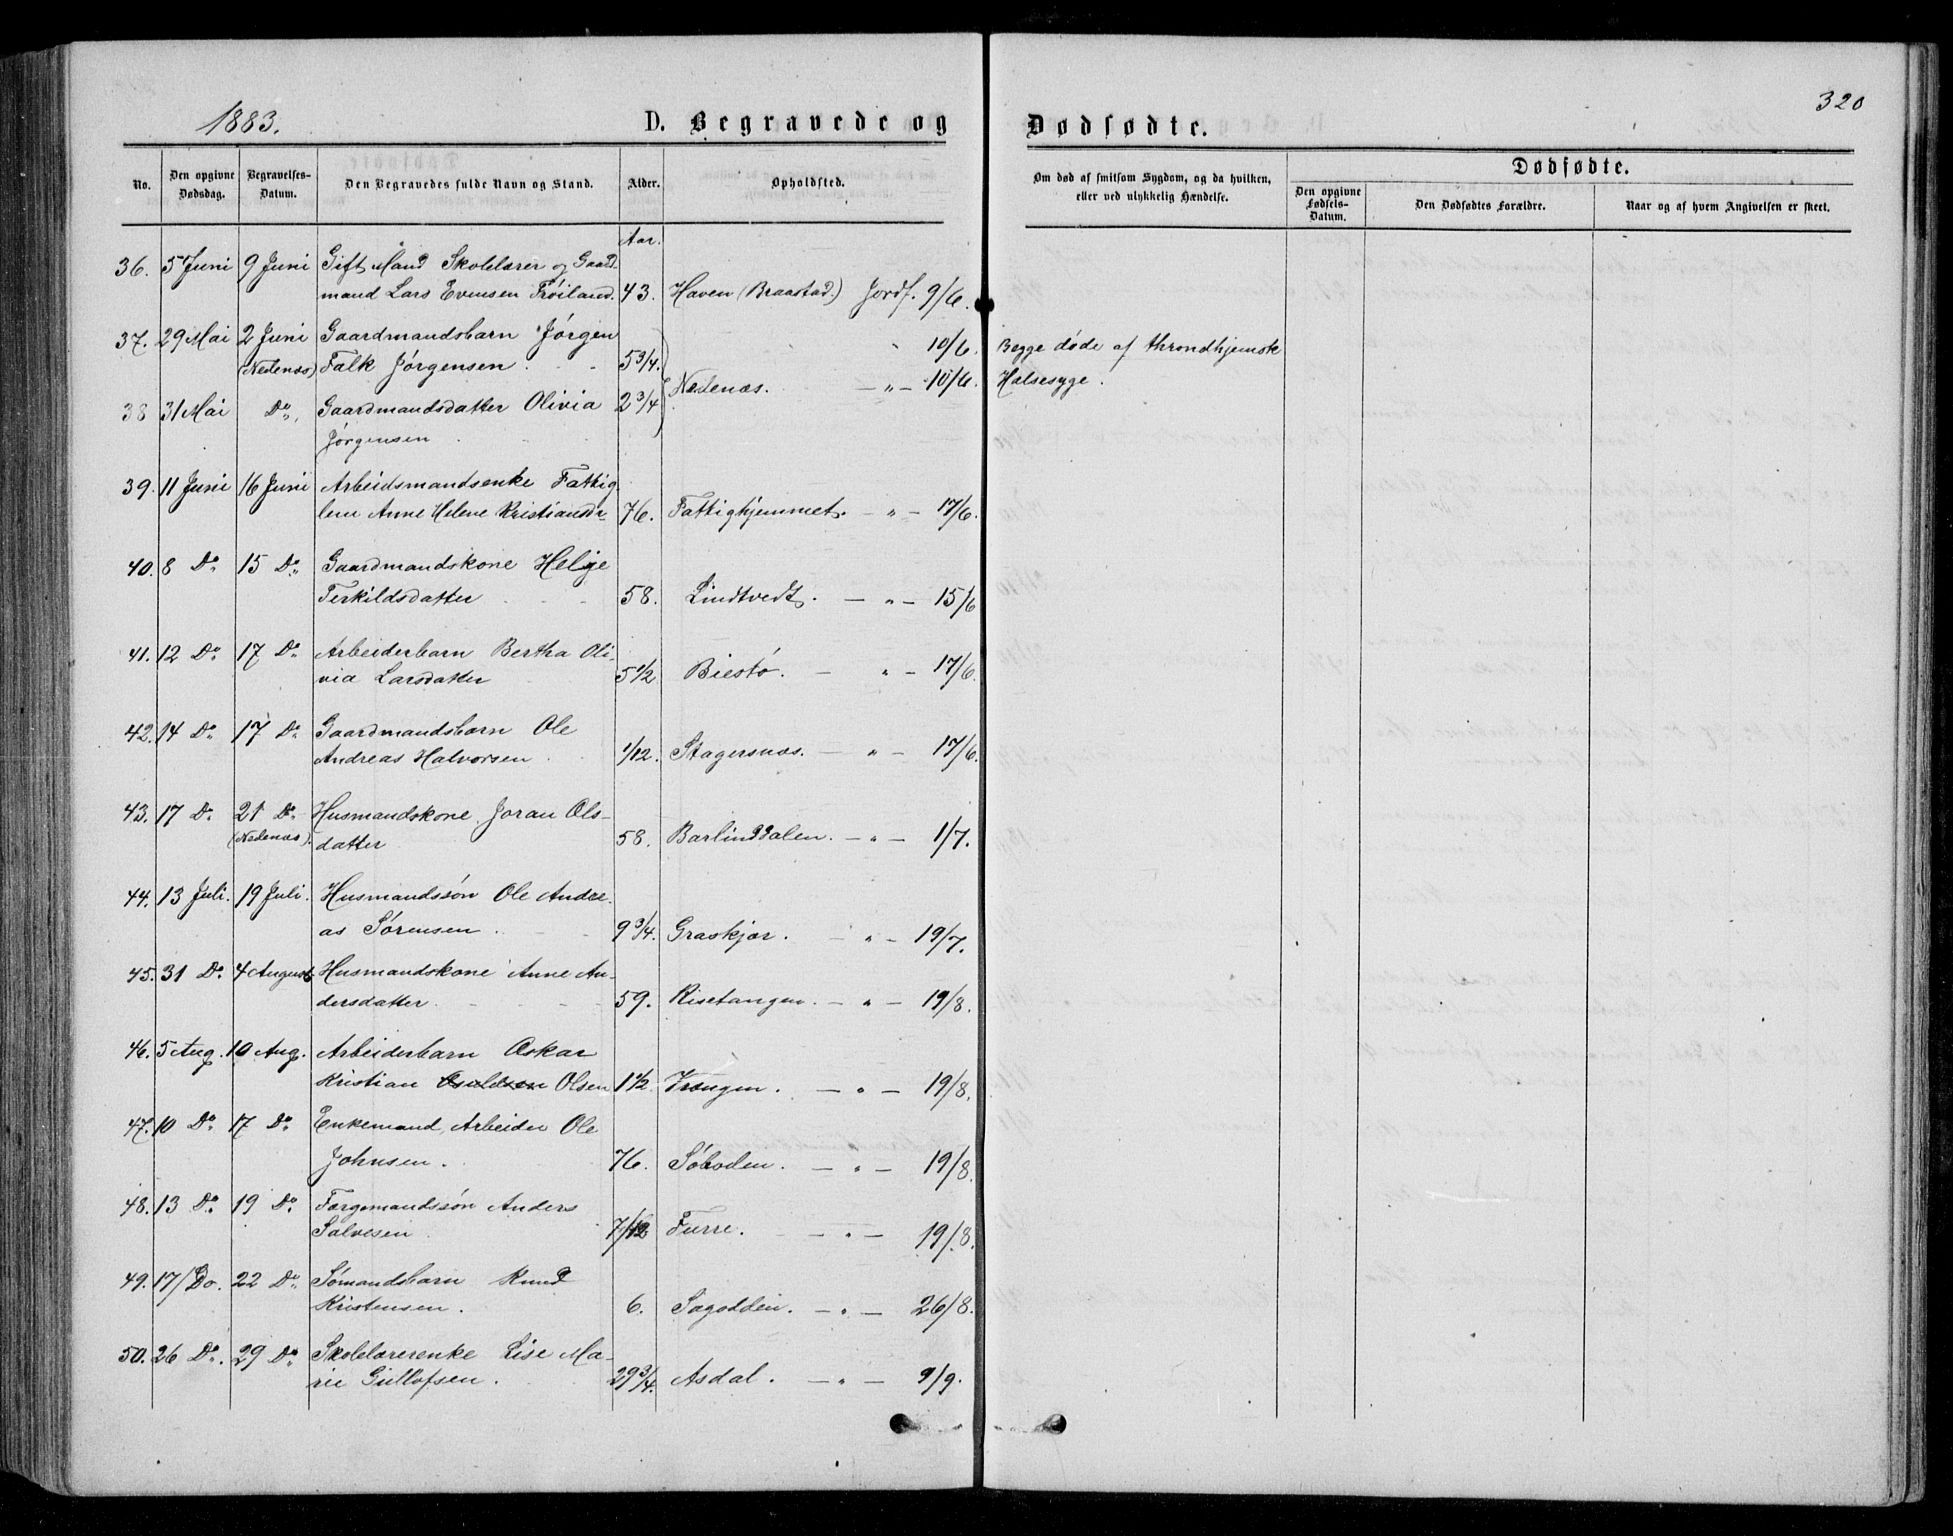 1883.
D. Begravede og
Dødfødte.
320
No.
Den opgivne Dødsdag.
Begravelses-Datum.
Den Begravedes fulde Navn og Stand.
Alder.
Opholdsted.
Om død af smitsom Sygdom, og da hvilken,
eller ved ulykkelig Hændelse.
Dødfødte.
Den opgivne Fødsels-Datum.
Den Dødfødtes Forældre.
Naar og af hvem Angivelsen er skeet.
Aar.
36. 5 Juni 9 Juni Gift Mand Skolelærer og Gaard-
mand Lars Evensen Trøiland. 43. Haven (Braastad.) Jordf. 9/6.
37. 29 Mai 2 Juni Gaardmandsbarn Jørgen " 10/6. Begge døde af throndhjemsk
(Nedenæs) Falk Jørgensen. 5 3/4. Nedenæs. — " — 10/6. Halsesyge.
38 31 Mai Do, Gaardmandsdatter Olivia 2 3/4
Jørgensen
39. 11 Juni 16 Juni Arbeidsmandsenke Fattig-
lem Anne Helene Kristiansdr 76. Fattighjemmet. — " — 17/6.
40. 8 Do 15 Do Gaardmandskone Helje
Terkildsdatter 58. Lindtvedt. — " — 15/6
41. 12 Do 17 Do Arbeiderbarn Bertha Oli-
via Larsdatter 5 1/2 Biestø. — " — 17/6.
42. 14 Do 17 Do Gaardmandsbarn Ole
Andreas Halvorsen 1/12. Stagersnæs. — " — 17/6.
43. 17 Do 21 Do Husmandskone Joran Ols-
(Nedenæs). datter 58. Barlinddalen. — " — 1/7.
44. 13 Juli. 19 Juli. Husmandssøn Ole Andre-
as Sørensen. 9 3/4. Graskjær. — " — 19/7.
45. 31 Do 4 August Husmandskone Anne An-
dersdatter. 59. Risetangen. — " — 19/8.
46. 5 Aug. 10 Aug. Arbeiderbarn Oskar
Kristian Olsen 1 1/2. Vrængen. — " — 19/8.
47. 10 Do 17 Do Enkemand, Arbeider Ole
Johnsen. 76. Søboden. — " — 19/8.
48. 13 Do 19 Do Færgemandssøn Anders
Salvesen 7/12 Furre. — " — 19/8.
49. 17/Do. 22 Do Sømandsbarn Knud
Kristensen. 6. Sagodden. — " — 26/8.
50. 26 Do. 29 Do Skolelærerenke Lise Ma-
rie Gullofsen. 29 3/4. Asdal. — " — 9/9.